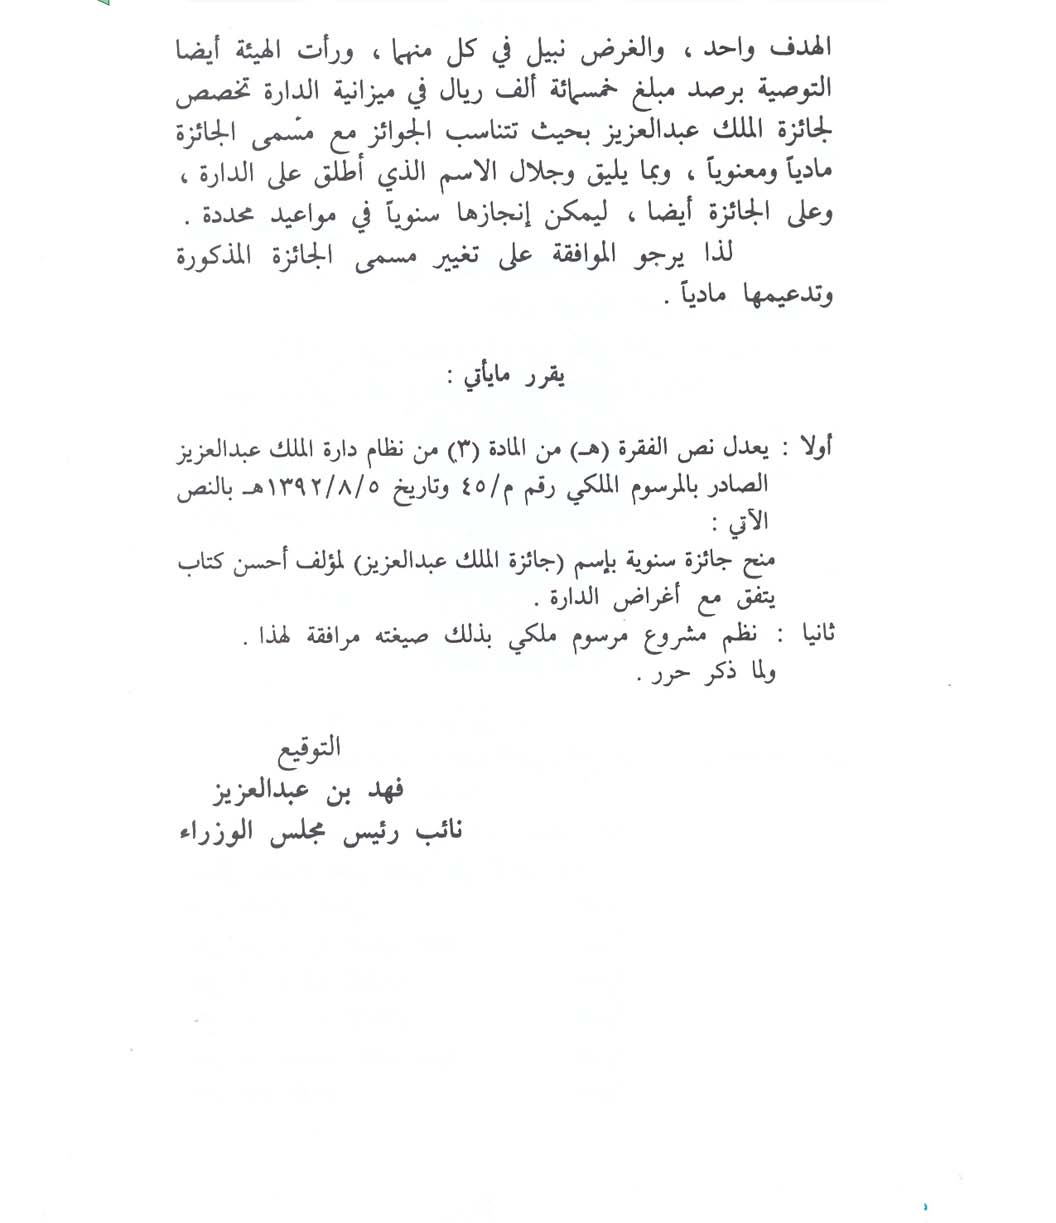 الهدف واحد ، والغرض نبيل في كل منهما ، ورأت الهيئة أيضا
التوصية برصد مبلغ خمسمائة ألف ريال في ميزانية الدارة تخصص
لجائزة الملك عبدالعزيز بحيث تتناسب الجوائز مع مسّمى الجائزة
مادياً ومعنوياً ، وبما يليق وجلال الاسم الذي أطلق على الدارة ،
وعلى الجائزة أيضا ، ليمكن إنجازها سنوياً في مواعيد محددة .
لذا يرجو الموافقة على تغيير مسمى الجائزة المذكورة
وتدعيمها مادياً .
يقرر مايأتي :
أولا : يعدل نص الفقرة (هـ) من المادة (٣) من نظام دارة الملك عبدالعزيز
الصادر بالمرسوم الملكي رقم م/٤٥ وتاريخ ١٣٩٢/٨/٥هـ بالنص
الآتي :
منح جائزة سنوية بإسم (جائزة الملك عبدالعزيز) لمؤلف أحسن كتاب
يتفق مع أغراض الدارة .
ثانيا : نظم مشروع مرسوم ملكي بذلك صيغته مرافقة لهذا .
ولما ذكر حرر .
التوقيع
فهد بن عبدالعزيز
نائب رئيس مجلس الوزراء